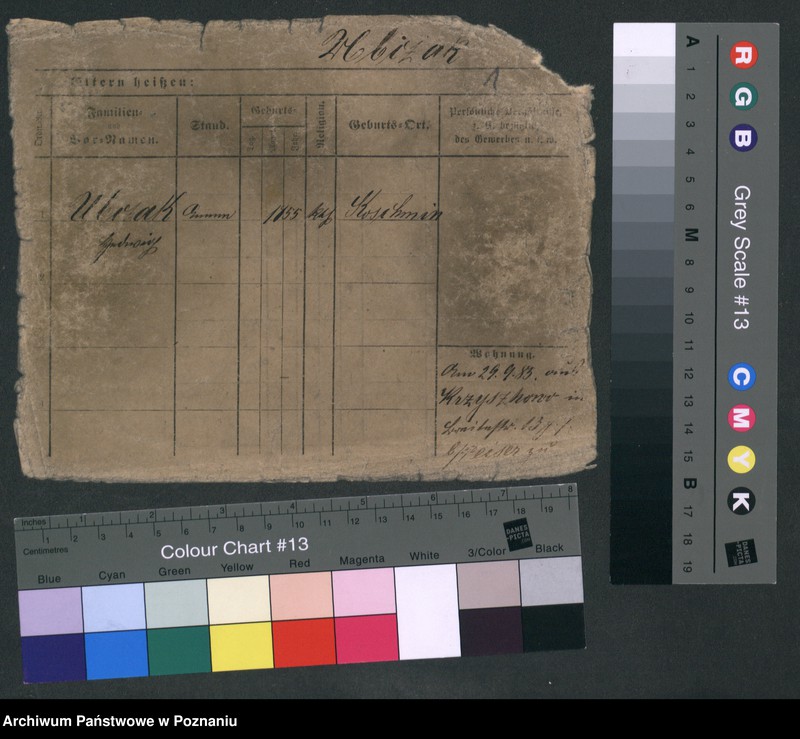 Ubizak
1
Eltern heißen:
Familien-
und
Vor-Namen.
Stand.
Geburts-
Tag.
Religion.
Geburts-Ort.
Persönliche Verhältnisse,
z. B. bezüglich
des Gewerbes u. s. w.
Ubizak
Hedwig
1855
kath
Koschmin
Wohnung.
Am 29.9.83. aus
Krzyszkowo in
zu
Inches 1 2 3 4 5 6 7 8
Centimetres 1 2 3 4 5 6 7 8 9 10 11 12 13 14 15 16 17 18 19
Colour Chart #13
DANES
-PICTA
.COM
Blue Cyan Green Yellow Red Magenta White 3/Color Black
A 1 2 3 4 5 6 M 8 9 10 11 12 13 14 15 B 17 18 19
R G B
Grey Scale #13
C M Y K
DANES
-PICTA
.COM
Archiwum Państwowe w Poznaniu